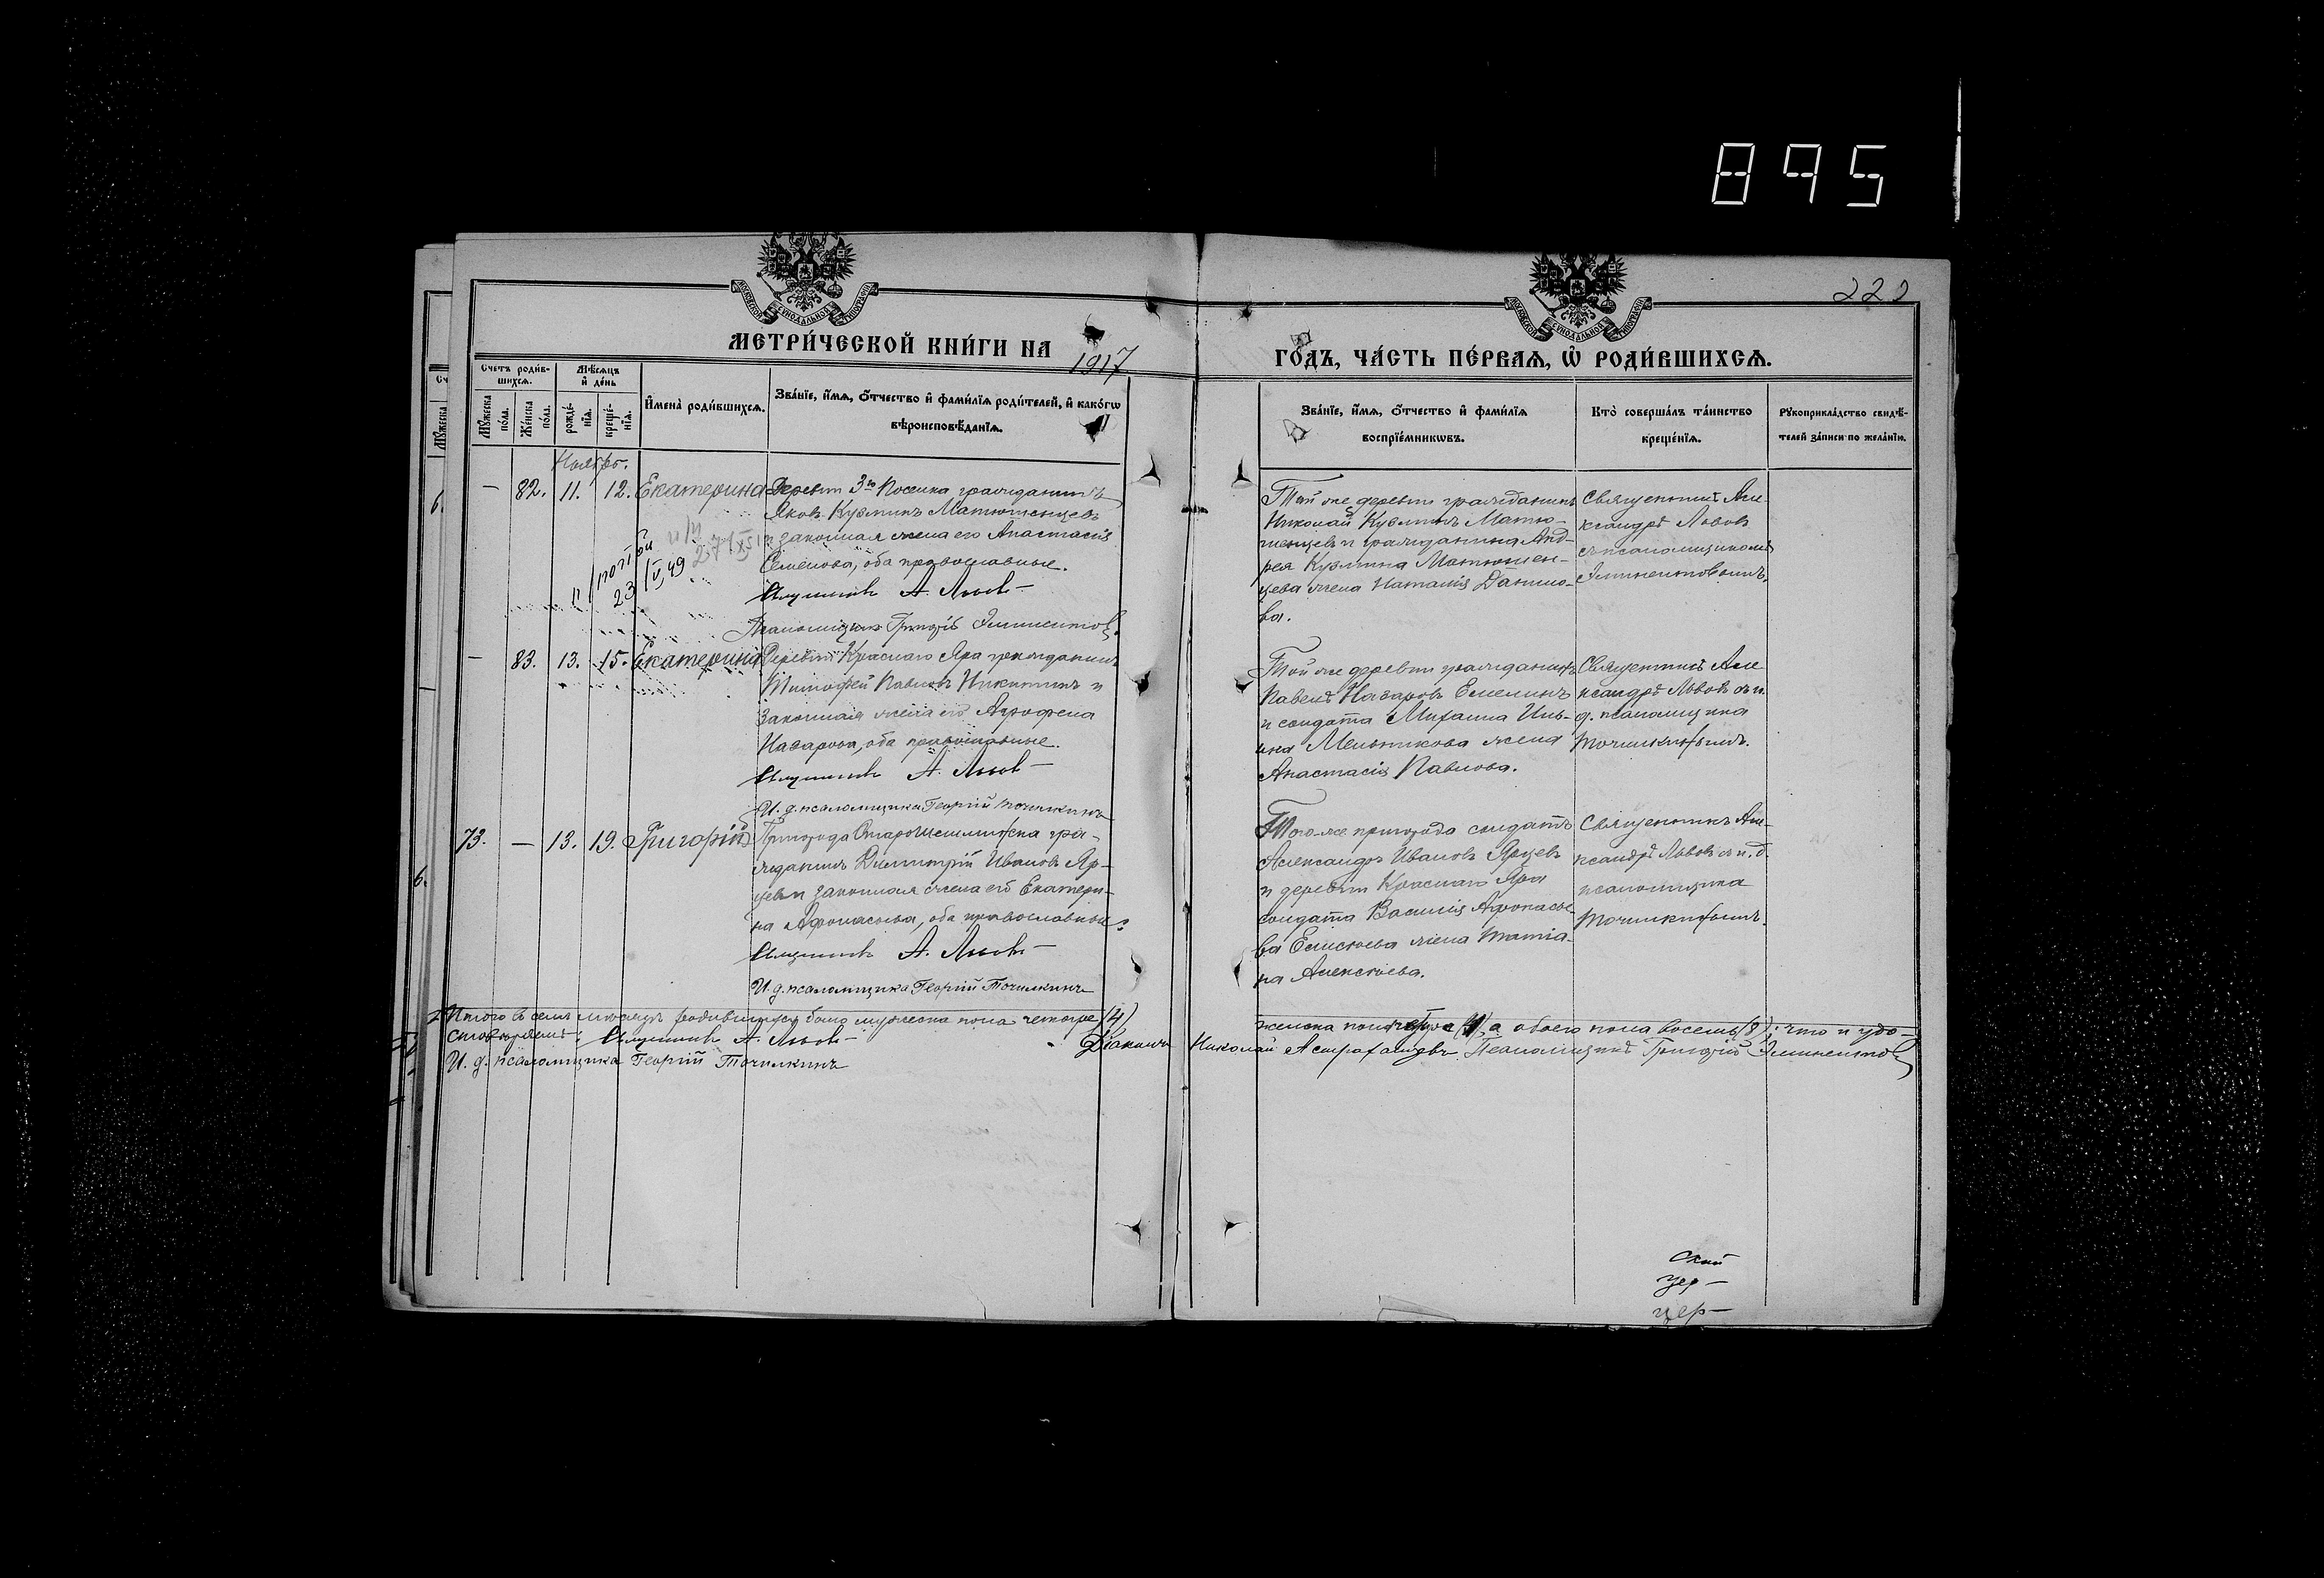 895
222
МОСКОВСКОЙ СУНОДАЛЬНОЙ ТИПОГРАФІИ
МОСКОВСКОЙ СУНОДАЛЬНОЙ ТИПОГРАФІИ
МЕТРИ́ЧЕСКОЙ КНИ́ГИ НА 1917
ГО́ДЪ, ЧА́СТЬ ПЕ́РВАЯ, Ѽ РОДИ́ВШИХСЯ.
Сче́тъ роди́в-
шихся.
Мѣ́сяцъ
и҆ де́нь
Мꙋ́жеска
по́ла.
Же́нска
по́ла.
рожде́-
нїѧ.
креще́-
нїѧ.
И҆мена̀ роди́вшихсѧ.
Зва́нїе, и҆́мѧ, ѻ҆́тчество и҆ фами́лїѧ роди́телей, и҆ како́гѡ
вѣроисповѣ́данїѧ.
Зва́нїе, и҆́мѧ, ѻ҆́тчество и҆ фами́лїѧ
воспрїе́мникѡвъ.
Кто̀ соверша́лъ та́инство
креще́нїѧ.
Рꙋкоприкла́дство свидѣ́-
телей за́писи по жела́нїю.
Ноябрь.
— 82. 11. 12. Екатерина
Деревни 3го Поселка гражданинъ
Яковъ Кузминъ Матюшенцевъ
и законная жена его Анастасія
Семенова, оба православные.
Священникъ А. Львовъ
Псаломщикъ Григорій Элпинектовъ
23/V, 49
27/XI 51
Той же деревни гражданинъ
Николай Кузминъ Матю-
шенцевъ и гражданина Анд-
рея Кузмина Матюшен-
цева жена Наталія Данило-
ва.
Священникъ Але-
ксандръ Львовъ
съ псаломщикомъ
— 83. 13. 15. Екатерина
Деревни Краснаго Яра гражданинъ
Тимофей Павловъ Никитинъ и
законная жена его Агрофена
Назарова, оба православные.
Священникъ А. Львовъ
И. д. псаломщика Георгій Точилкинъ
Той же деревни гражданинъ
Павелъ Назаровъ Емелинъ
и солдата Михаила Иль-
ина Мельникова жена
Анастасія Павлова.
Священникъ Але-
ксандръ Львовъ съ и.
д. псаломщика
Точилкинымъ.
73. — 13. 19. Григорій
Пригорода Старошешминска гра-
жданинъ Димитрій Ивановъ Яр-
цевъ и законная жена его Екатери-
на Афонасьева, оба православные.
Священникъ А. Львовъ
И. д. псаломщика Георгій Точилкинъ
Того-же пригорода солдатъ
Александръ Ивановъ Ярцевъ
и деревни Краснаго Яра
солдата Василія Афонасье-
ва Елисеева жена Татіа-
на Алексѣева.
Священникъ Але-
ксандръ Львовъ съ и. д.
псаломщика
Точилкинымъ.
Итого въ семъ мѣсяцѣ родившихся было мужеска пола четыре (4)
женска пола четыре (4), а обоего пола восемь (8); что и удо-
стовѣряемъ: Священникъ А. Львовъ
Діаконъ Николай Псаломщикъ Григорій
И. д. псаломщика Георгій Точилкинъ
ской
цер-
цер-